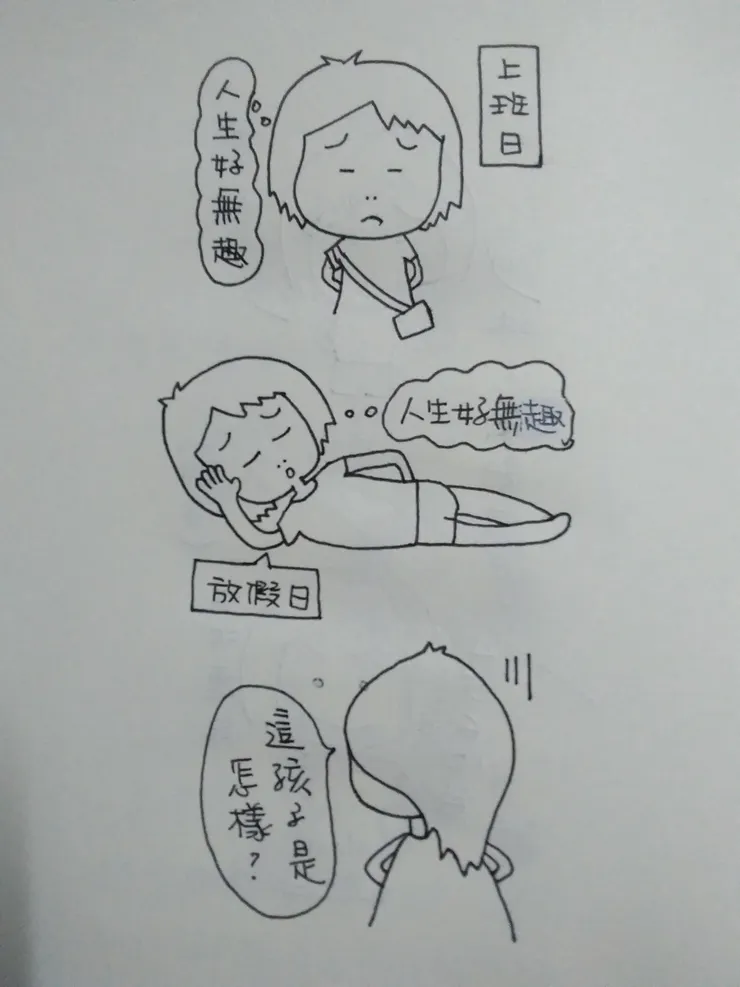 上班日
人生好無趣
人生好無趣
放假日
這孩子是
怎樣？